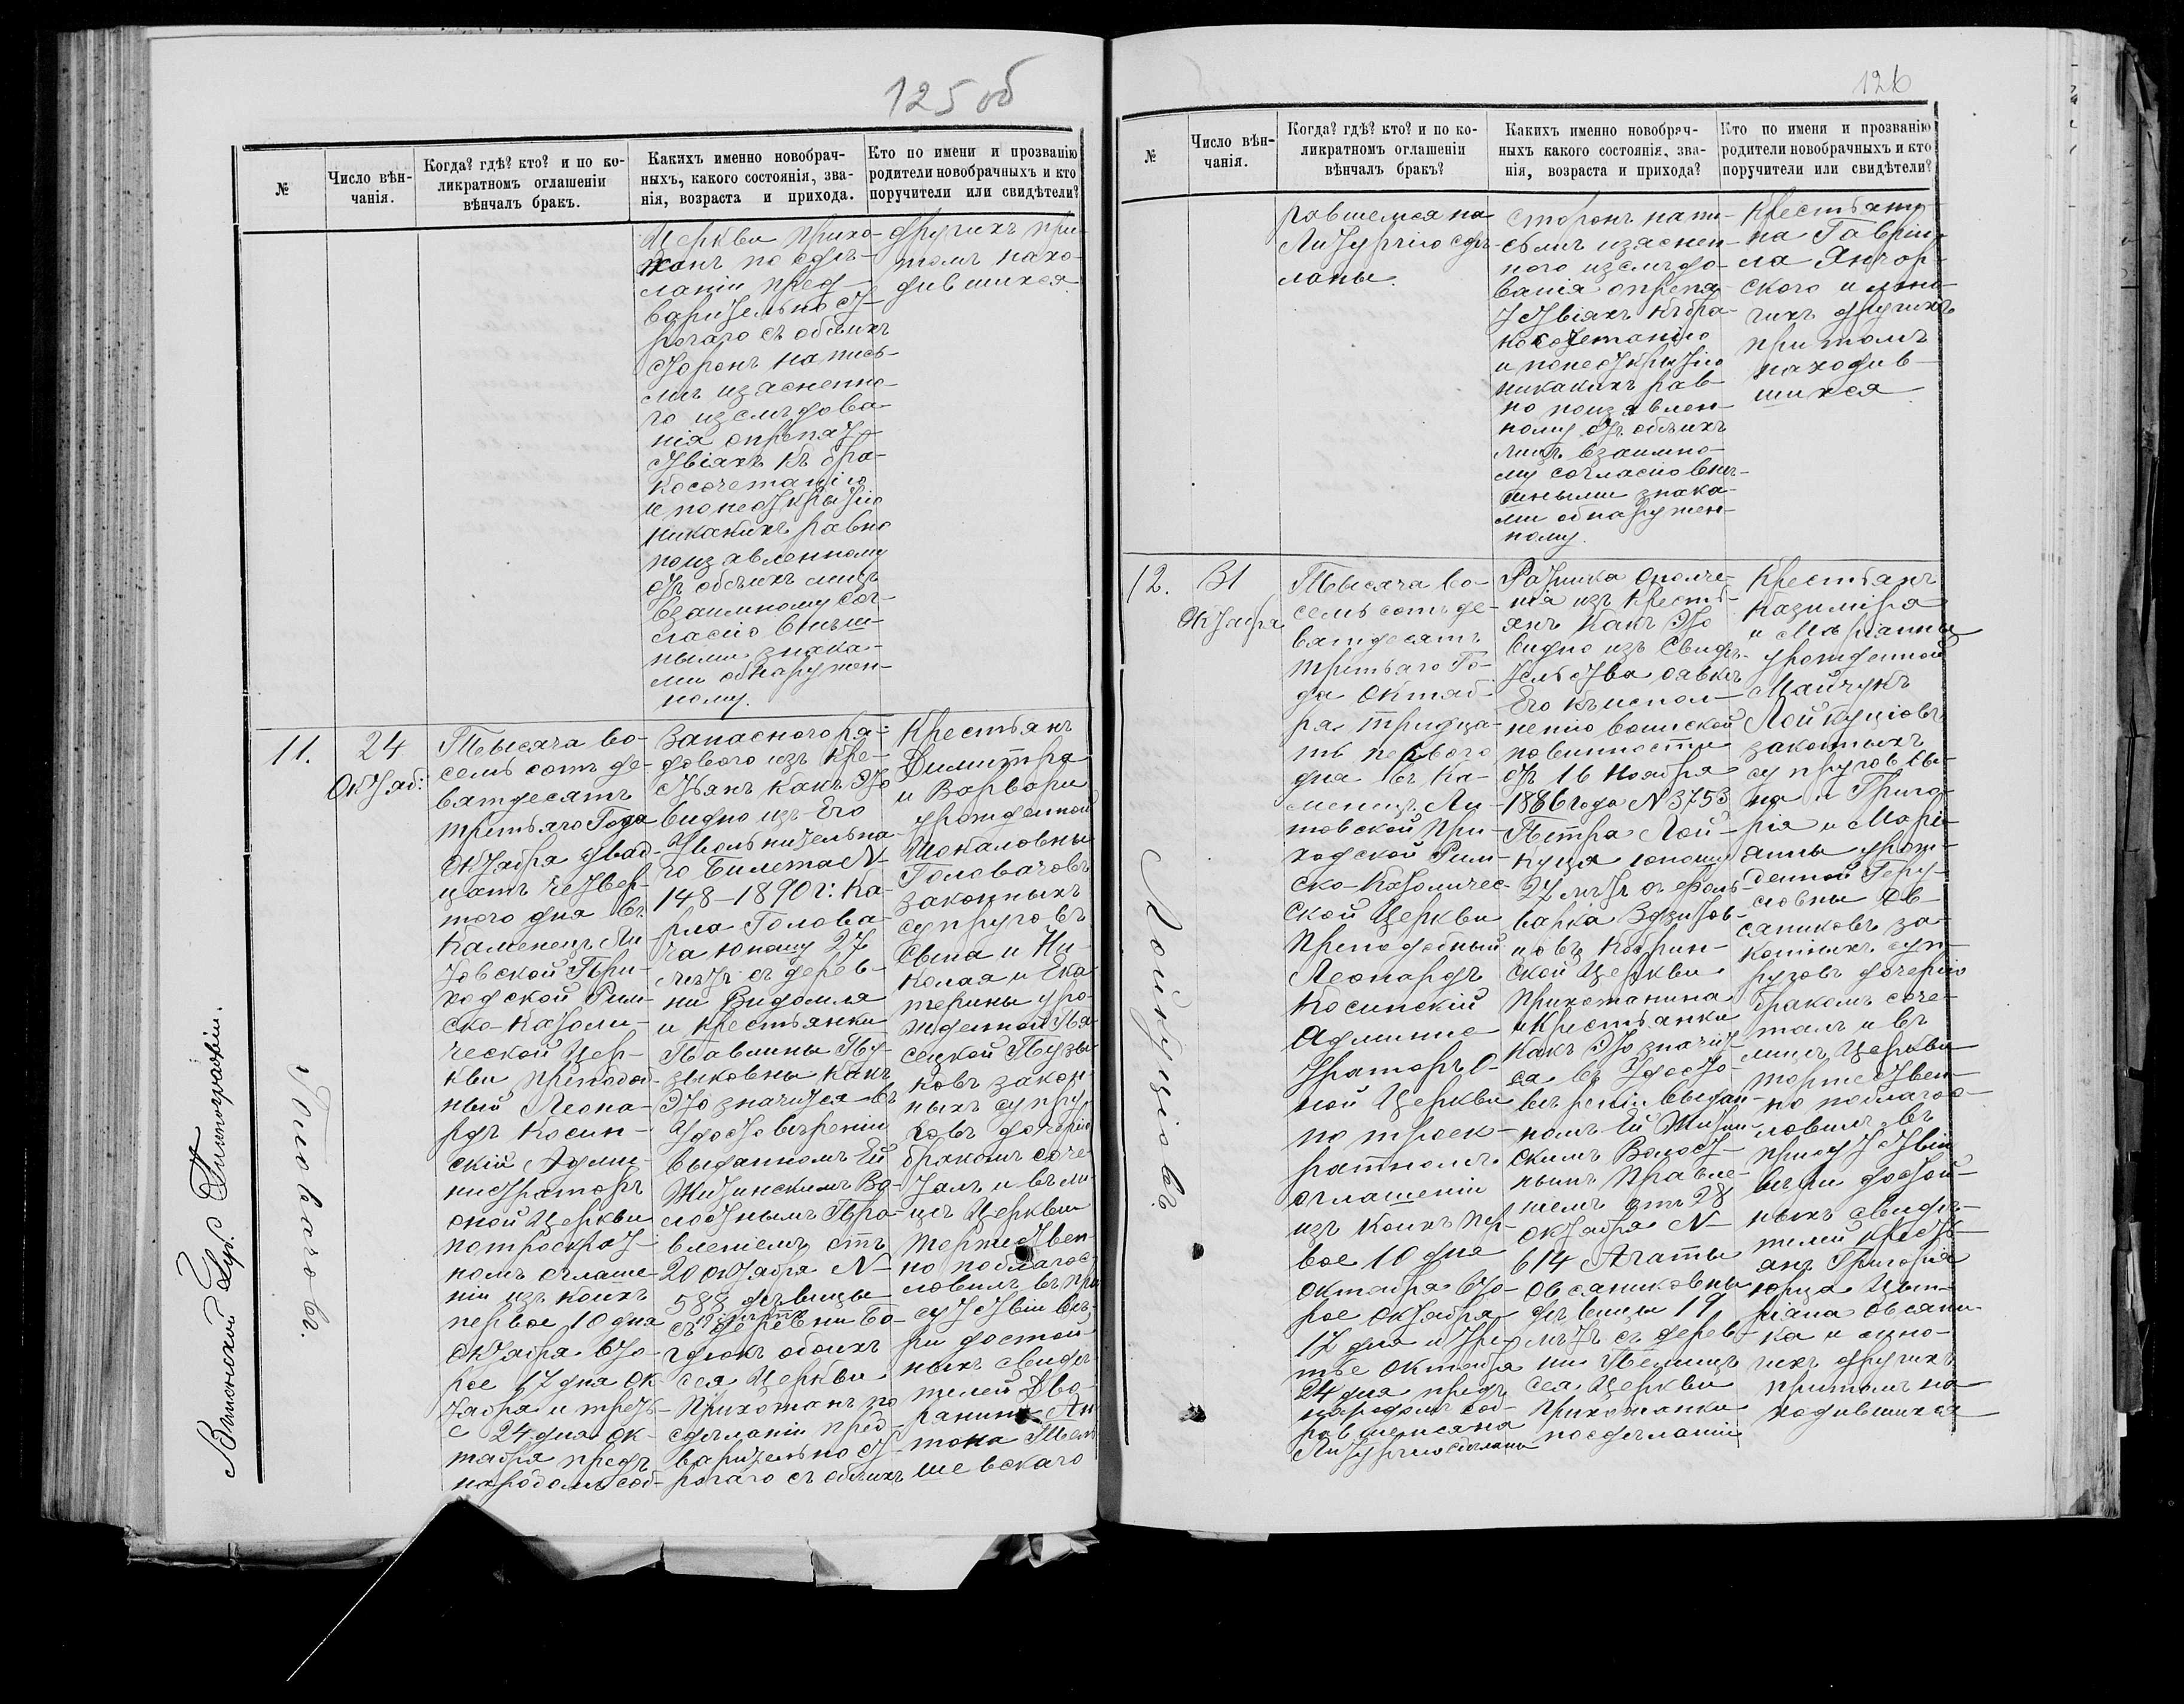 125 об
№
Число вѣн-
чанія.
Когда? гдѣ? кто? и по ко-
ликратномъ оглашеніи
вѣнчалъ бракъ.
Какихъ именно новобрач-
ныхъ, какого состоянія, зва-
нія, возраста и прихода.
Кто по имени и прозванію
родители новобрачныхъ и кто
поручители или свидѣтели?
Церкви прихо-
жанъ по сдѣ-
ланіи пред-
варительно ст-
рогаго съ обѣихъ
сторонъ на пись-
мѣ изяснено-
го изслѣдова-
нія опрепят-
ствіяхъ къ бра-
косочетанію
и понеоткрытію
никакихъ равно
поизявленному
отъ обѣихъ лицъ
взаимному сог-
ласію внѣш-
ными знака-
ми обнаружен-
ному.
другихъ при
томъ нахо-
дившихся.
11.
24
Октяб:
Тысяча во-
семь сотъ де-
вятдесятъ
третьяго Года
Октября двад-
цатъ четвер-
того дня въ
Каменецъ Ли-
товской При-
ходской Рим-
ско-Католи-
ческой Цер-
кви Преподоб-
ный Леона-
рдъ Косин-
скій Адми-
нистраторъ
оной Церкви
потроекрат-
номъ оглаше-
ніи изъ коихъ
первое 10 дня
Октября вто-
рое 17 дня Ок-
тября и треть-
е 24 дня Ок-
тября предъ
народомъ соб-
Запасного ря-
дового изъ Кре-
стьянъ какъ это
видно изъ Его
Увольнительна-
го Билета №
148-1890 г: Ка-
рла Голова-
ча юношу 27
лѣтъ съ дерев-
ни Видомля
и Крестьянки
Павлины Пу-
зыковны какъ
это значится въ
Удостовѣреніи
выданномъ Ей
Житинскимъ Во-
лостнымъ Пра-
вленіемъ отъ
20 Октября №
588 дѣвицы
19 лѣтъ
съ деревни Бо-
гдюкъ обоихъ
сея Церкви
Прихожанъ по
сдѣланіи пред-
варительно ст-
рогаго съ обѣихъ
Крестьянъ
Димитра
и Варвары
урожденной
Шокаловны
Головачовъ
законныхъ
супруговъ
Сына и Ни-
колая и Ека-
терины уро-
жденной
сецкой Пузы-
ковъ закон-
ныхъ супру-
говъ дочерію
бракомъ соче-
талъ и въ ли-
цѣ Церкви
торжествен-
но поблагос-
ловилъ въ при-
сутствіи вѣ-
ры достой-
ныхъ свидѣ-
телей Дво-
ранина Ан-
тона
шевскаго
Головачовъ.
Виленской Губ. Типографіи.
126
№
Число вѣн-
чанія.
Когда? гдѣ? кто? и по ко-
ликратномъ оглашеніи
вѣнчалъ бракъ?
Какихъ именно новобрач-
ныхъ какого состоянія, зва-
нія, возраста и прихода?
Кто по имени и прозванію
родители новобрачныхъ и кто
поручители или свидѣтели?
равшемся на
Литургію сдѣ-
ланы.
сторонъ на пи-
сьмѣ изяснен-
ного изслѣдо-
ванія опрепя-
тствіяхъ къ бра-
косочетанію
и понеоткрытію
никакихъ рав-
но поизявлен-
ному отъ обѣихъ
лицъ взаимно-
му согласію внѣ-
шными знака-
ми обнаружен-
ному.
Крестьяни-
на Гаврии-
ла Янчор-
ского и мно-
гихъ другихъ
притомъ
находив-
шихся
12.
31
Октября
Тысяча во-
семь сотъ де-
вятдесятъ
третьяго Го-
да Октяб-
ря тридца-
ть первого
дня въ Ка-
менецъ Ли-
товской При-
ходской Рим-
ско-Католичес-
кой Церкви
Преподобный
Леонардъ
Косинскій
Админис-
траторъ о-
ной Церкви
по троек-
ратномъ
оглашеніи
изъ коихъ пер-
вое 10 дня
Октября вто-
рое Октября
17 дня и тре-
тье Октября
24 дня предъ
народомъ соб-
равшемся на
Литургію сдѣланы
Ратника Ополче-
нія изъ Кресть-
янъ какъ это
видно изъ Свидѣ-
тельства оявкѣ
Его къ испол-
ненію воинской
повинности
отъ 16 Ноября
1886 года №3753
Петра Лой-
куця юношу
27 лѣтъ съ фоль-
варка
цовъ Кобрин-
ской Церкви
Прихожанина
и Крестьянки
какъ это значит-
ся въ Удосто-
вѣреніи выдан-
номъ Ей Жити-
нскимъ Волост-
нымъ Правле-
ніемъ отъ 28
Октября №
614 Агаты
Овсяниковны
дѣвицы 19
лѣтъ съ дерев-
ни Пелищъ
сея Церкви
Прихожанки
посдѣланіи
Крестьянъ
Казимира
и Маріанны
урожденной
Майчукъ
Лойкуціовъ
законныхъ
супруговъ Сы-
на и Григо-
рія и Марі-
анны урож-
денной Геру-
совны Ов-
сяниковъ за-
конныхъ суп-
руговъ дочерію
бракомъ соче-
талъ и въ
лицѣ Церкви
торжествен-
но поблагос-
ловилъ въ
присутствіи
вѣры достой-
ныхъ свидѣ-
телей Кресть-
янъ Григорія
Цып-
ріана Овсяни-
ка и мно-
гихъ другихъ
притомъ на-
ходившихся
Лойкуціовъ.